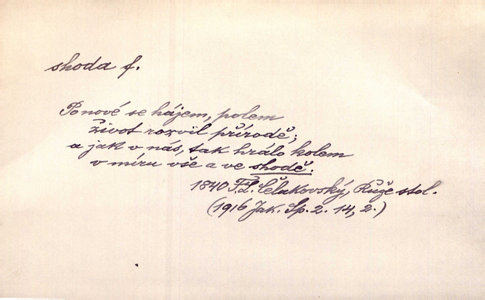 shoda f.
Ponové se hájem, polem
život rozvil přírodě;
a jak v nás, tak hrálo kolem
v míru vše a ve shodě.
1840 F. L. Čelakovský, Růže stol.
(1916 Jak. Sp. 2. 14, 2.)